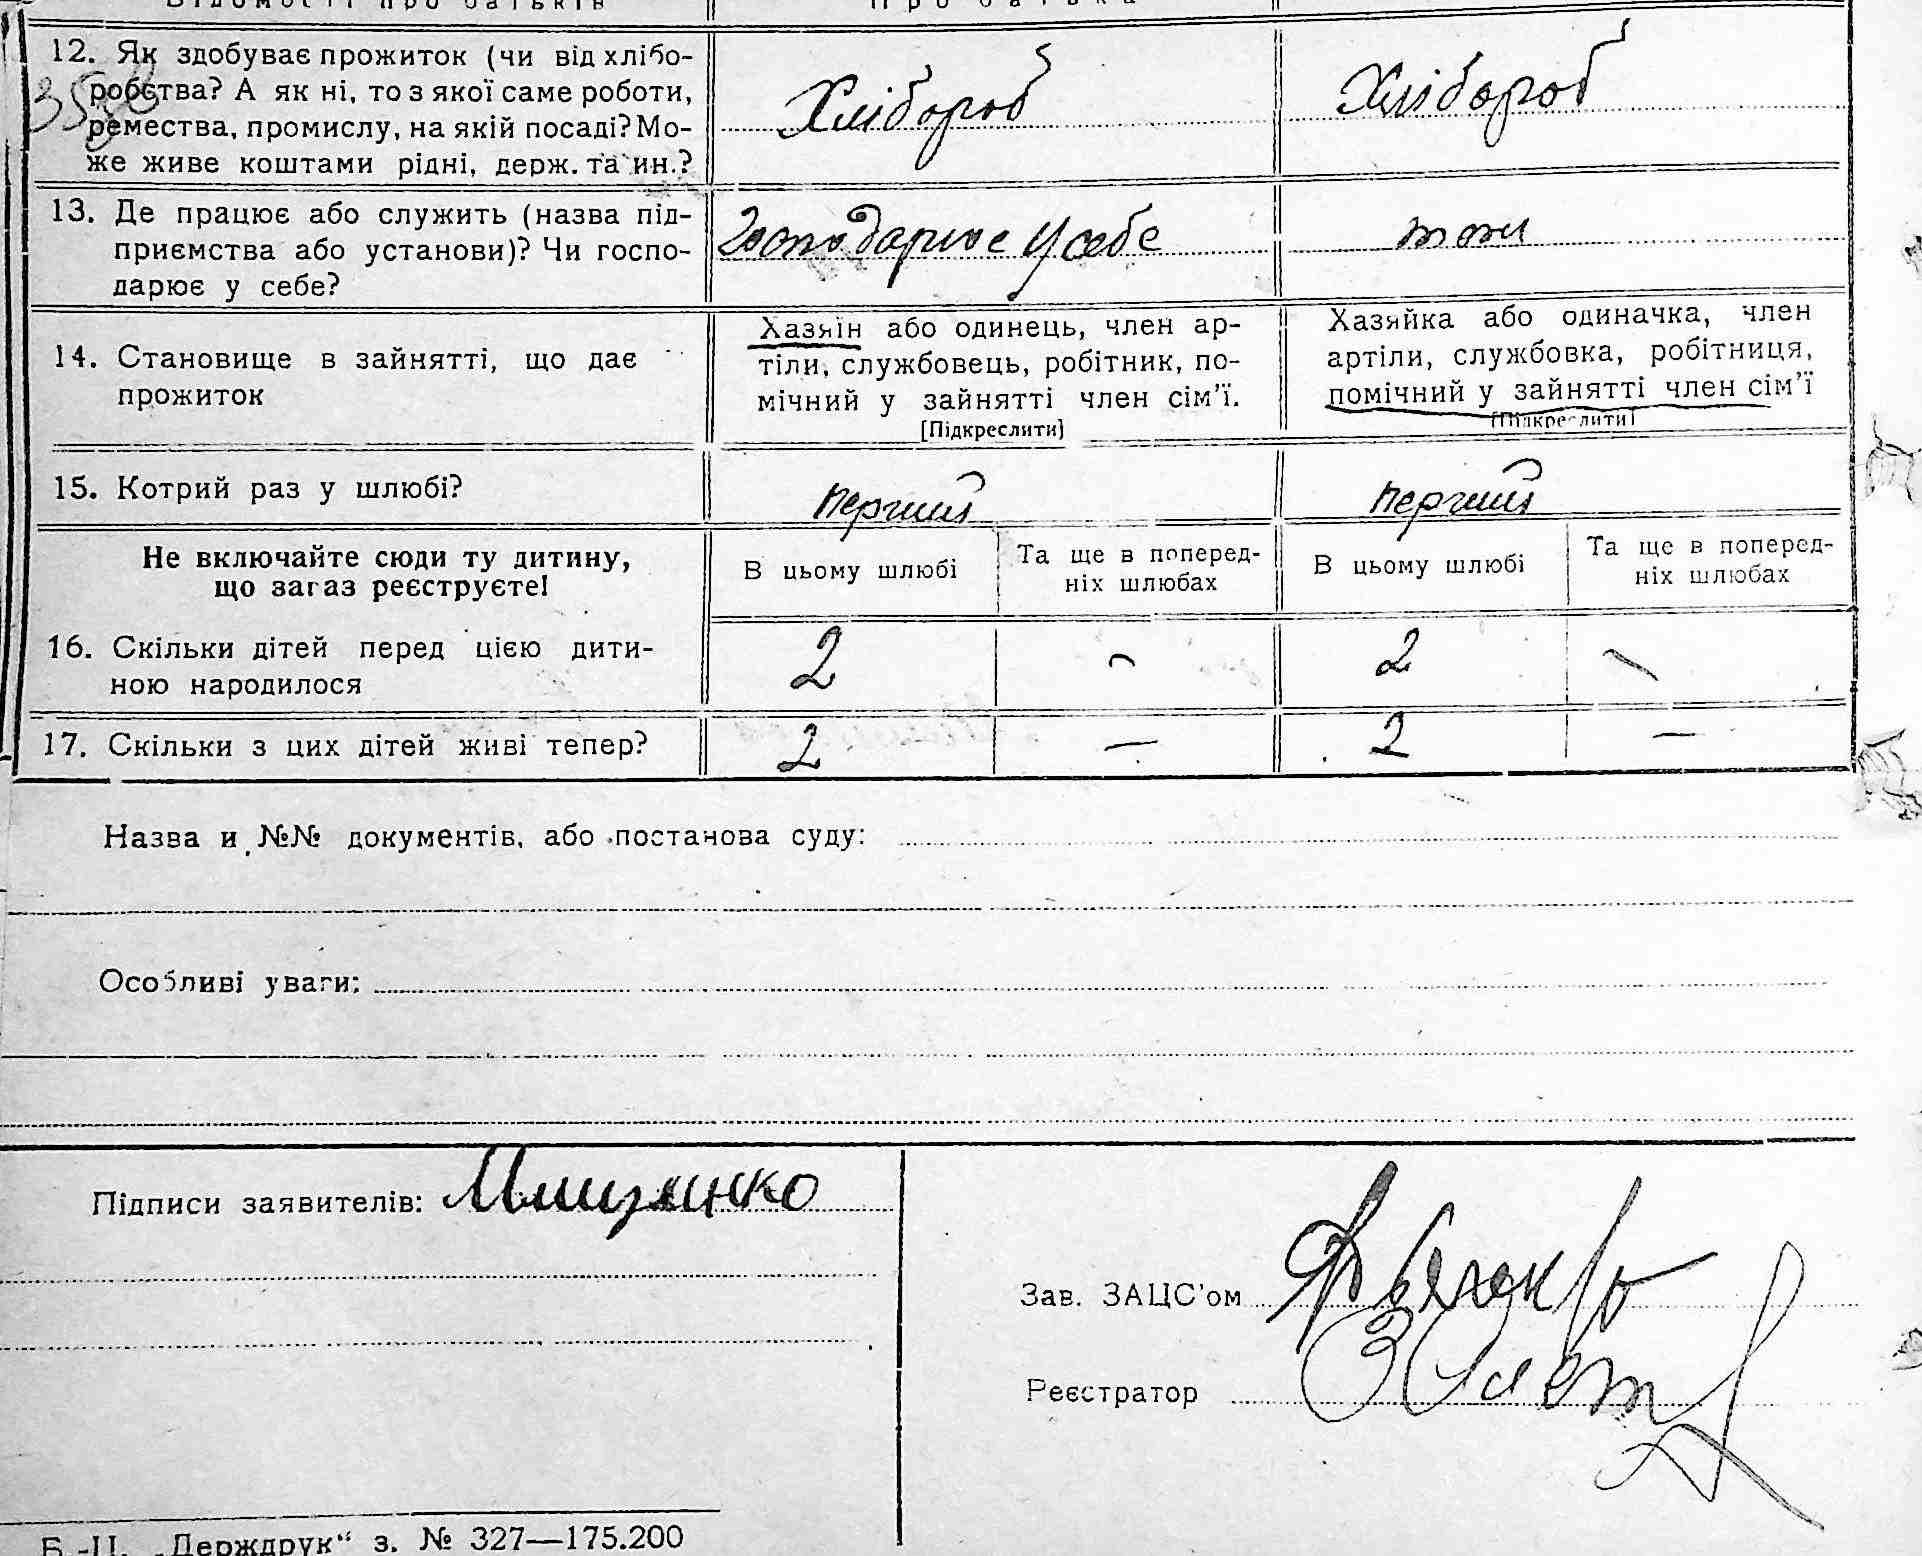 Відомості про батьків Про батька
12. Як здобуває прожиток (чи від хлібо-
робства? А як ні, то з якої саме роботи,
ремества, промислу, на якій посаді? Мо-
же живе коштами рідні, держ. та ин.?
Хлібороб Хлібороб
13. Де працює або служить (назва під-
приємства або установи)? Чи госпо-
дарює у себе?
Господарює у себе
14. Становище в зайнятті, що дає
прожиток
Хазяїн або одинець, член ар-
тіли, службовець, робітник, по-
мічний у зайнятті член сім'ї.
[Підкреслити]
Хазяйка або одиначка, член
артіли, службовка, робітниця,
помічний у зайнятті член сім'ї
[Підкреслити]
15. Котрий раз у шлюбі? перший перший
Не включайте сюди ту дитину,
що зараз реєструєте!
В цьому шлюбі
Та ще в поперед-
ніх шлюбах
В цьому шлюбі
Та ще в поперед-
ніх шлюбах
16. Скільки дітей перед цією дити-
ною народилося
2 - 2 -
17. Скільки з цих дітей живі тепер? 2 — 2 —
Назва и №№ документів, або постанова суду:
Особливі уваги:
Підписи заявителів:
Зав. ЗАЦС'ом
Реєстратор
Б.-Ц. „Держдрук“ з. № 327—175.200